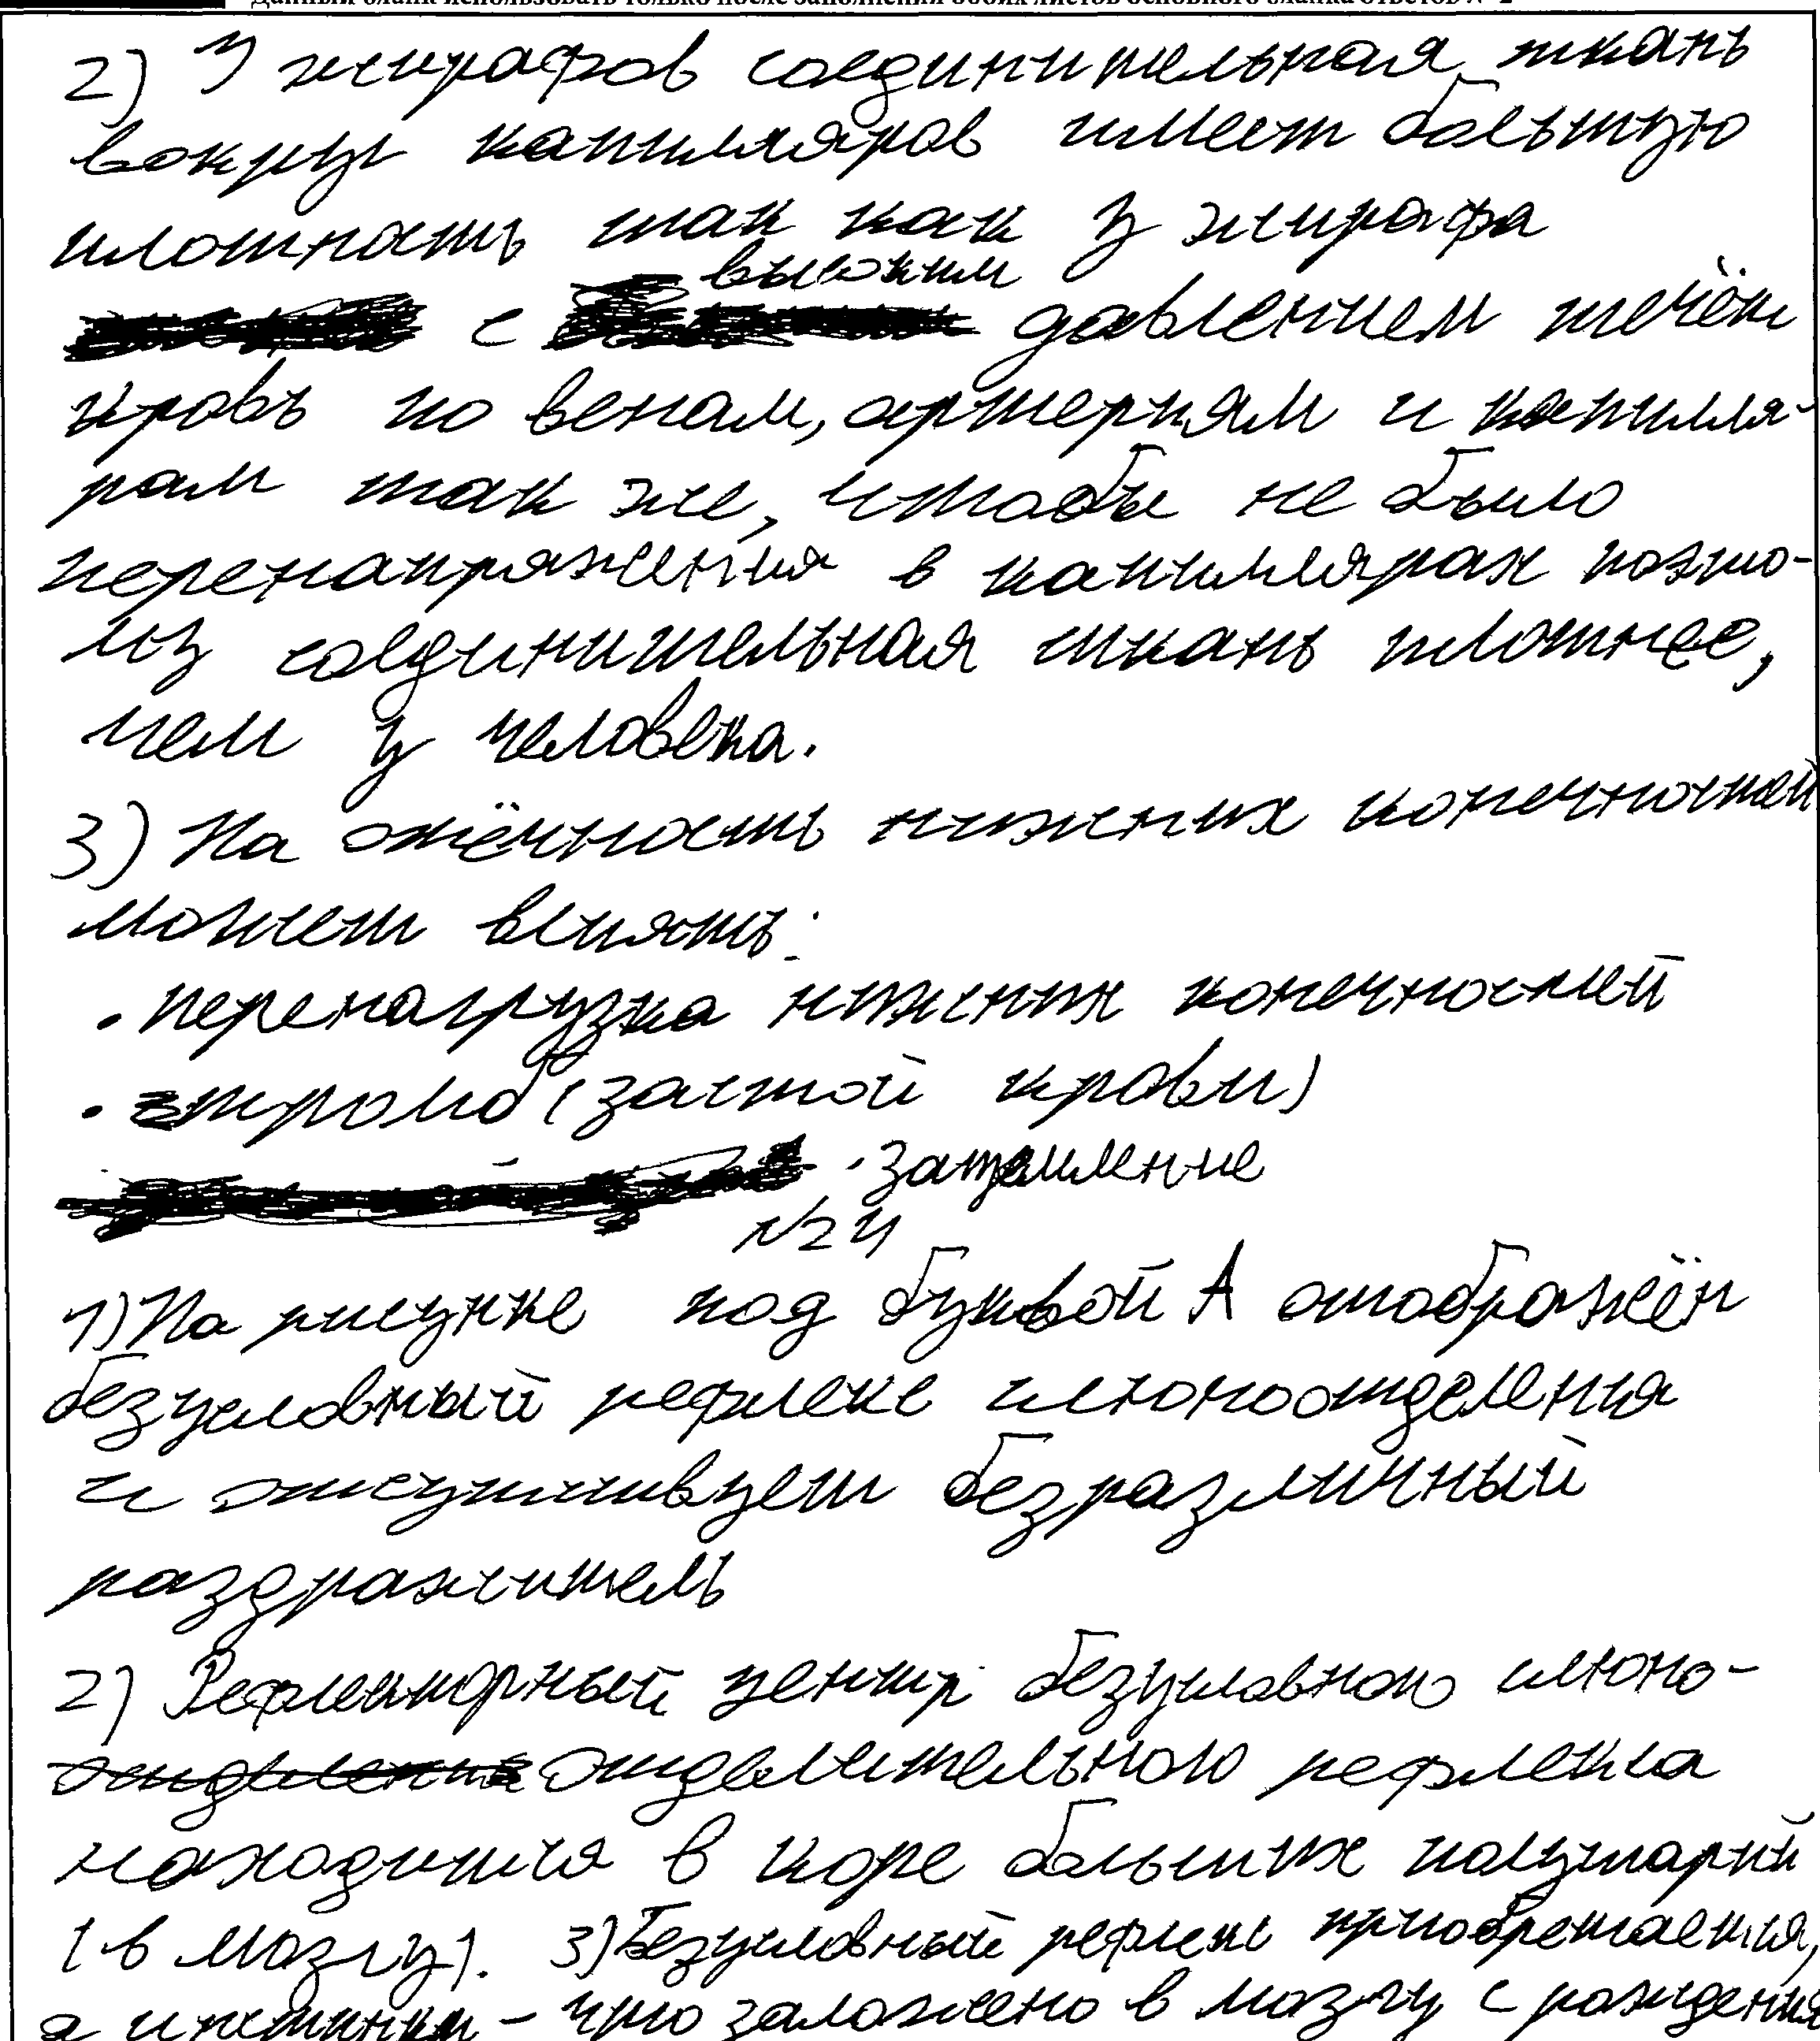 Данный бланк использовать только после заполнения обоих листов основного бланка ответов № 2
2) У жирафов соединительная ткань
вокруг капилляров имеет большую
плотность так как у жирафа
с высоким давлением течёт
кровь по венам, артериям и капилля-
рам так же, чтобы не было
перенапряжения в капиллярах поэто-
му соединительная ткань плотнее,
чем у человека.
3) На отёчность нижних конечностей
может влиять:
• перенагрузка нижних конечностей
• тромб (застой крови)
• защемление
№24
1) На рисунке под буквой А отображён
безусловный рефлекс слюноотделения
и отсутствует безразличный
раздражитель
2) Рефлекторный центр безусловного слюно-
отделительного рефлекса
находится в коре больших полушарий
(в мозгу). 3) Безусловный рефлекс приобретается,
а инстинкт - что заложено в мозгу с рождения